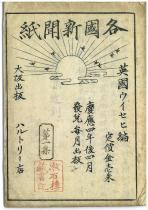 各國新聞紙
英國ウイセヒ編
定價金壱朱
慶應四年四月
發兌毎月出板
第一集
大坂出板
ハルトリー店